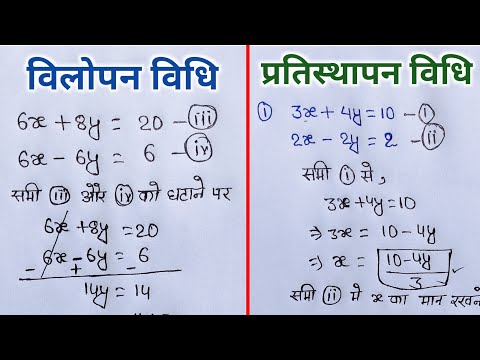 विलोपन विधि
6x + 8y = 20 - iii
6x - 6y = 6 - iv
समी iii और iv को घटाने पर
6x + 8y = 20
6x - 6y = 6
- + -
14y = 14
प्रतिस्थापन विधि
i 3x + 4y = 10 - i
2x - 2y = 2 - ii
समी i से,
3x + 4y = 10
⇒ 3x = 10 - 4y
⇒ x = 10 - 4y
3
समी ii में x का मान रखने